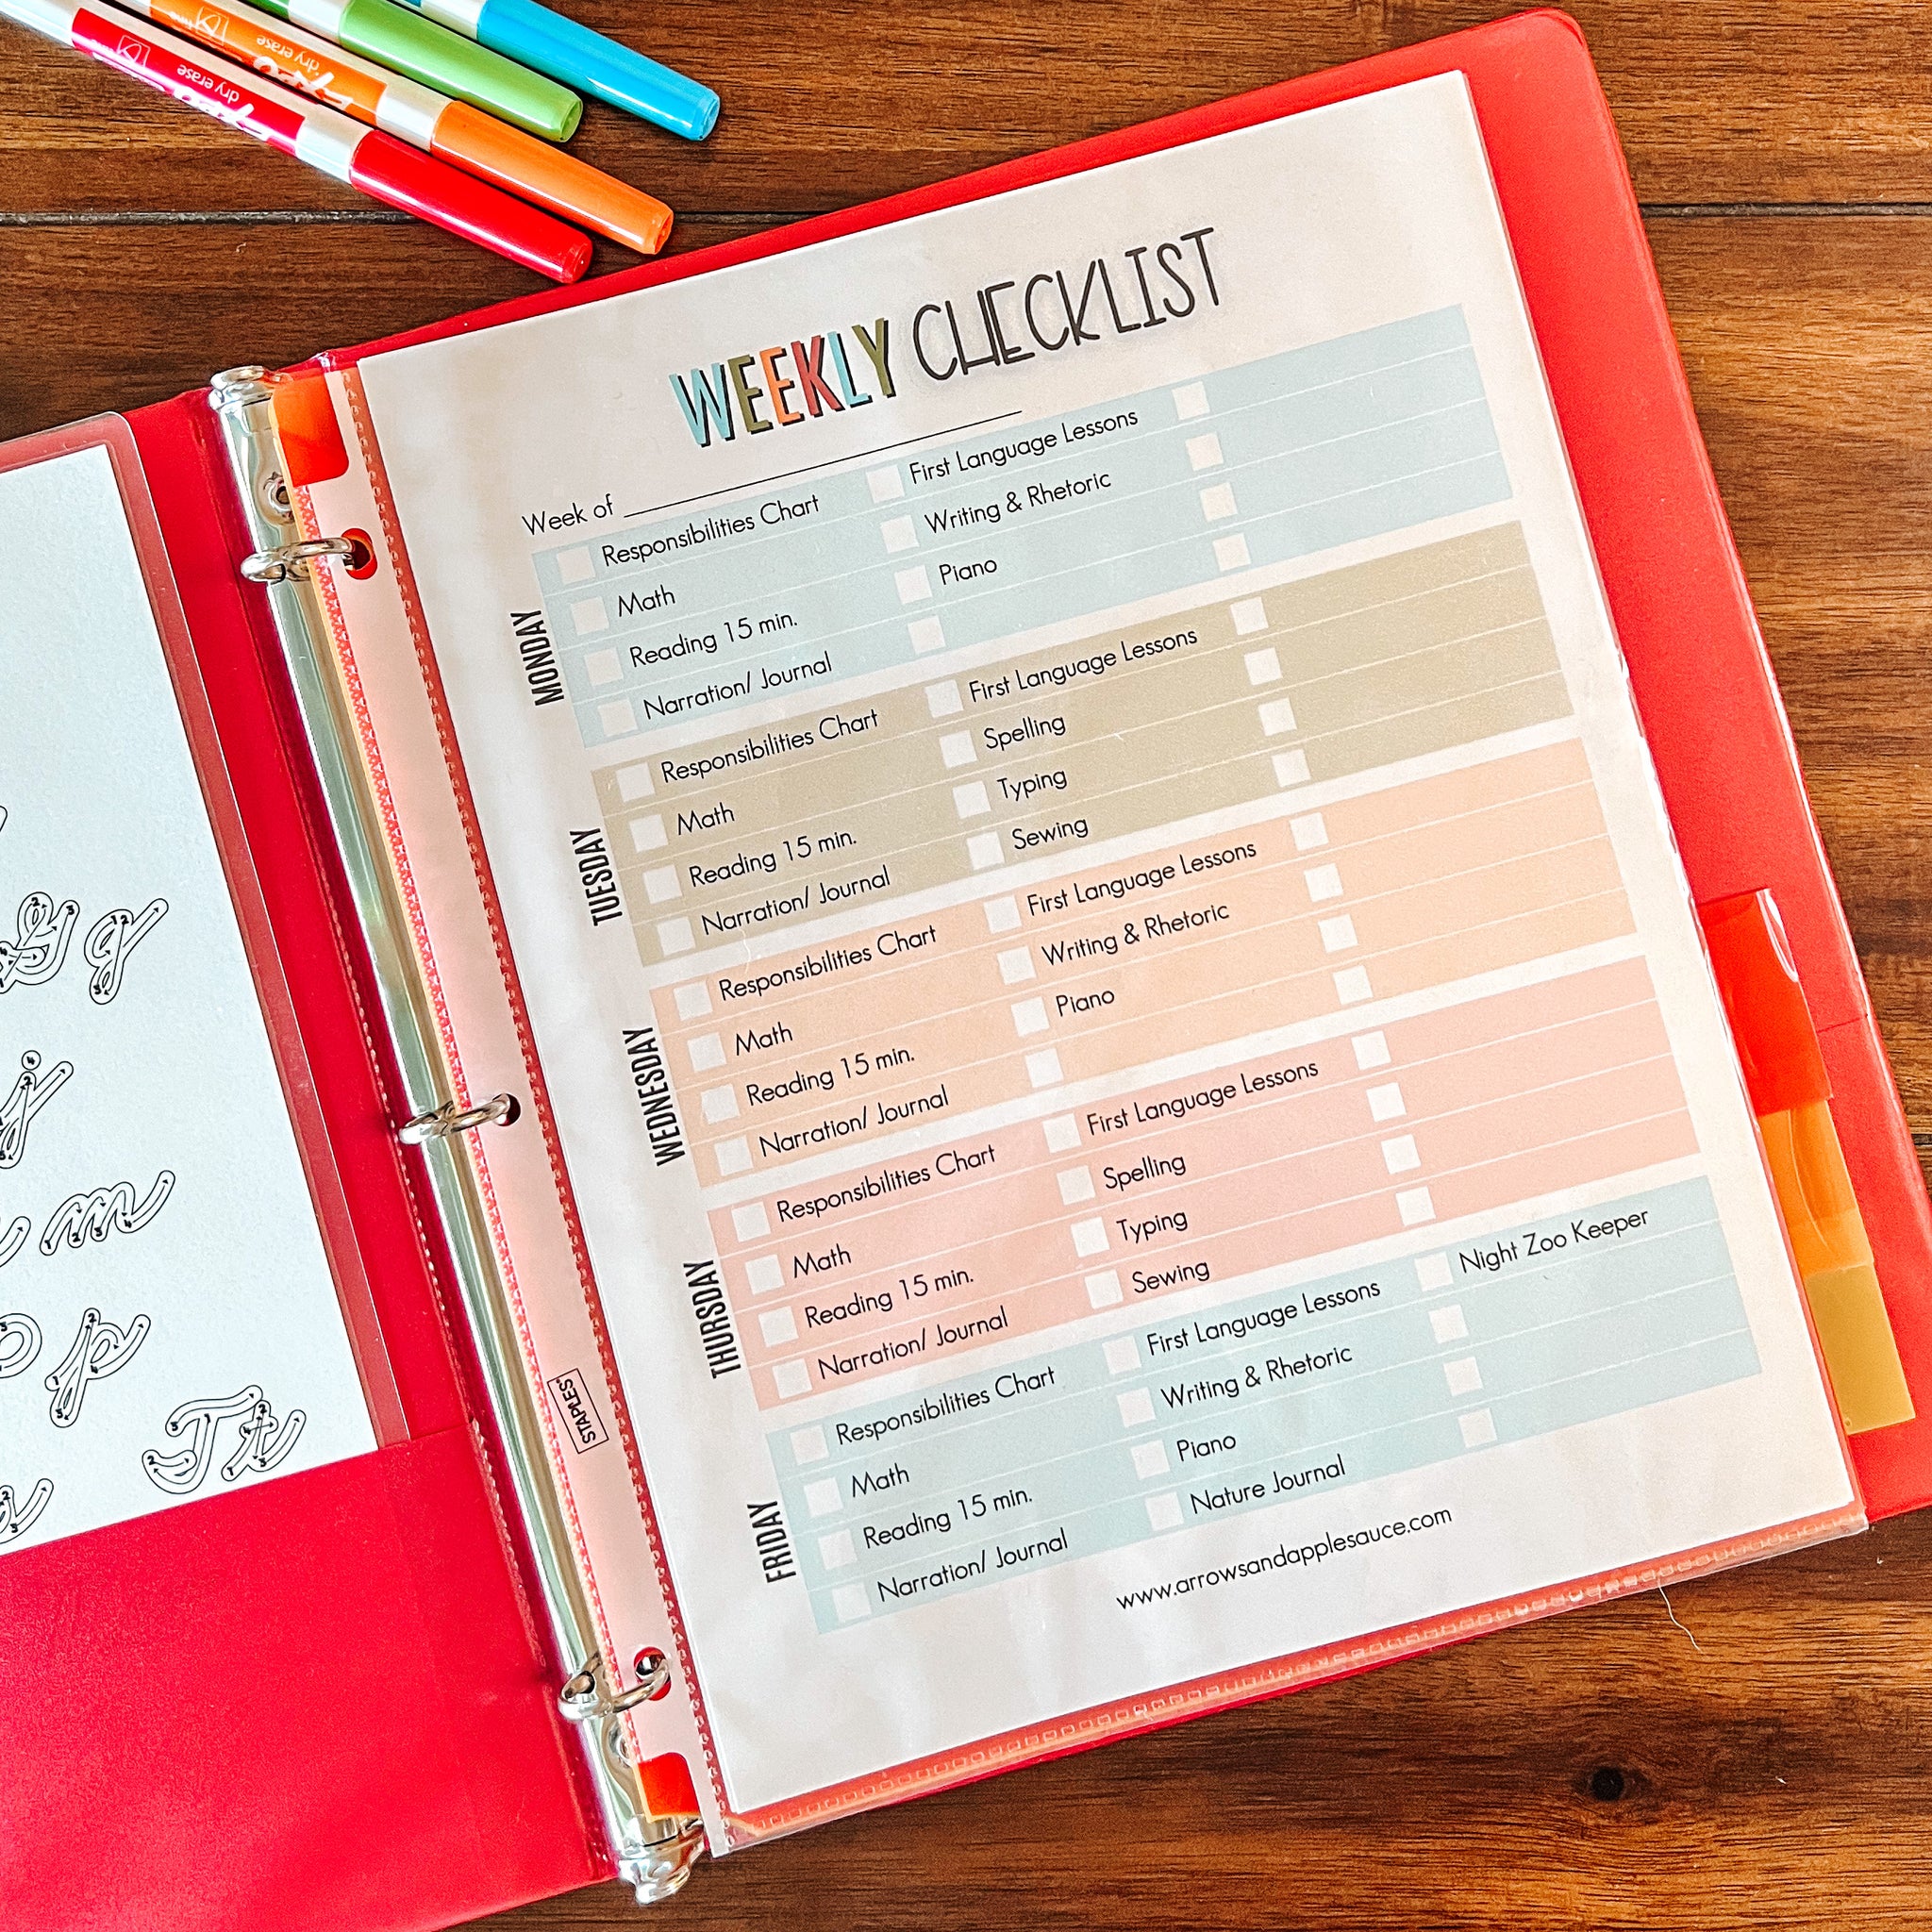 EXPO dry erase fine
EXPO dry erase fine
WEEKLY CHECKLIST
Week of
MONDAY
Responsibilities Chart First Language Lessons
Math Writing & Rhetoric
Reading 15 min. Piano
Narration/ Journal
TUESDAY
Responsibilities Chart First Language Lessons
Math Spelling
Reading 15 min. Typing
Narration/ Journal Sewing
WEDNESDAY
Responsibilities Chart First Language Lessons
Math Writing & Rhetoric
Reading 15 min. Piano
Narration/ Journal
THURSDAY
Responsibilities Chart First Language Lessons
Math Spelling
Reading 15 min. Typing
Narration/ Journal Sewing
FRIDAY
Responsibilities Chart First Language Lessons Night Zoo Keeper
Math Writing & Rhetoric
Reading 15 min. Piano
Narration/ Journal Nature Journal
www.arrowsandapplesauce.com
STAPLES
G g
j
m
p
T t